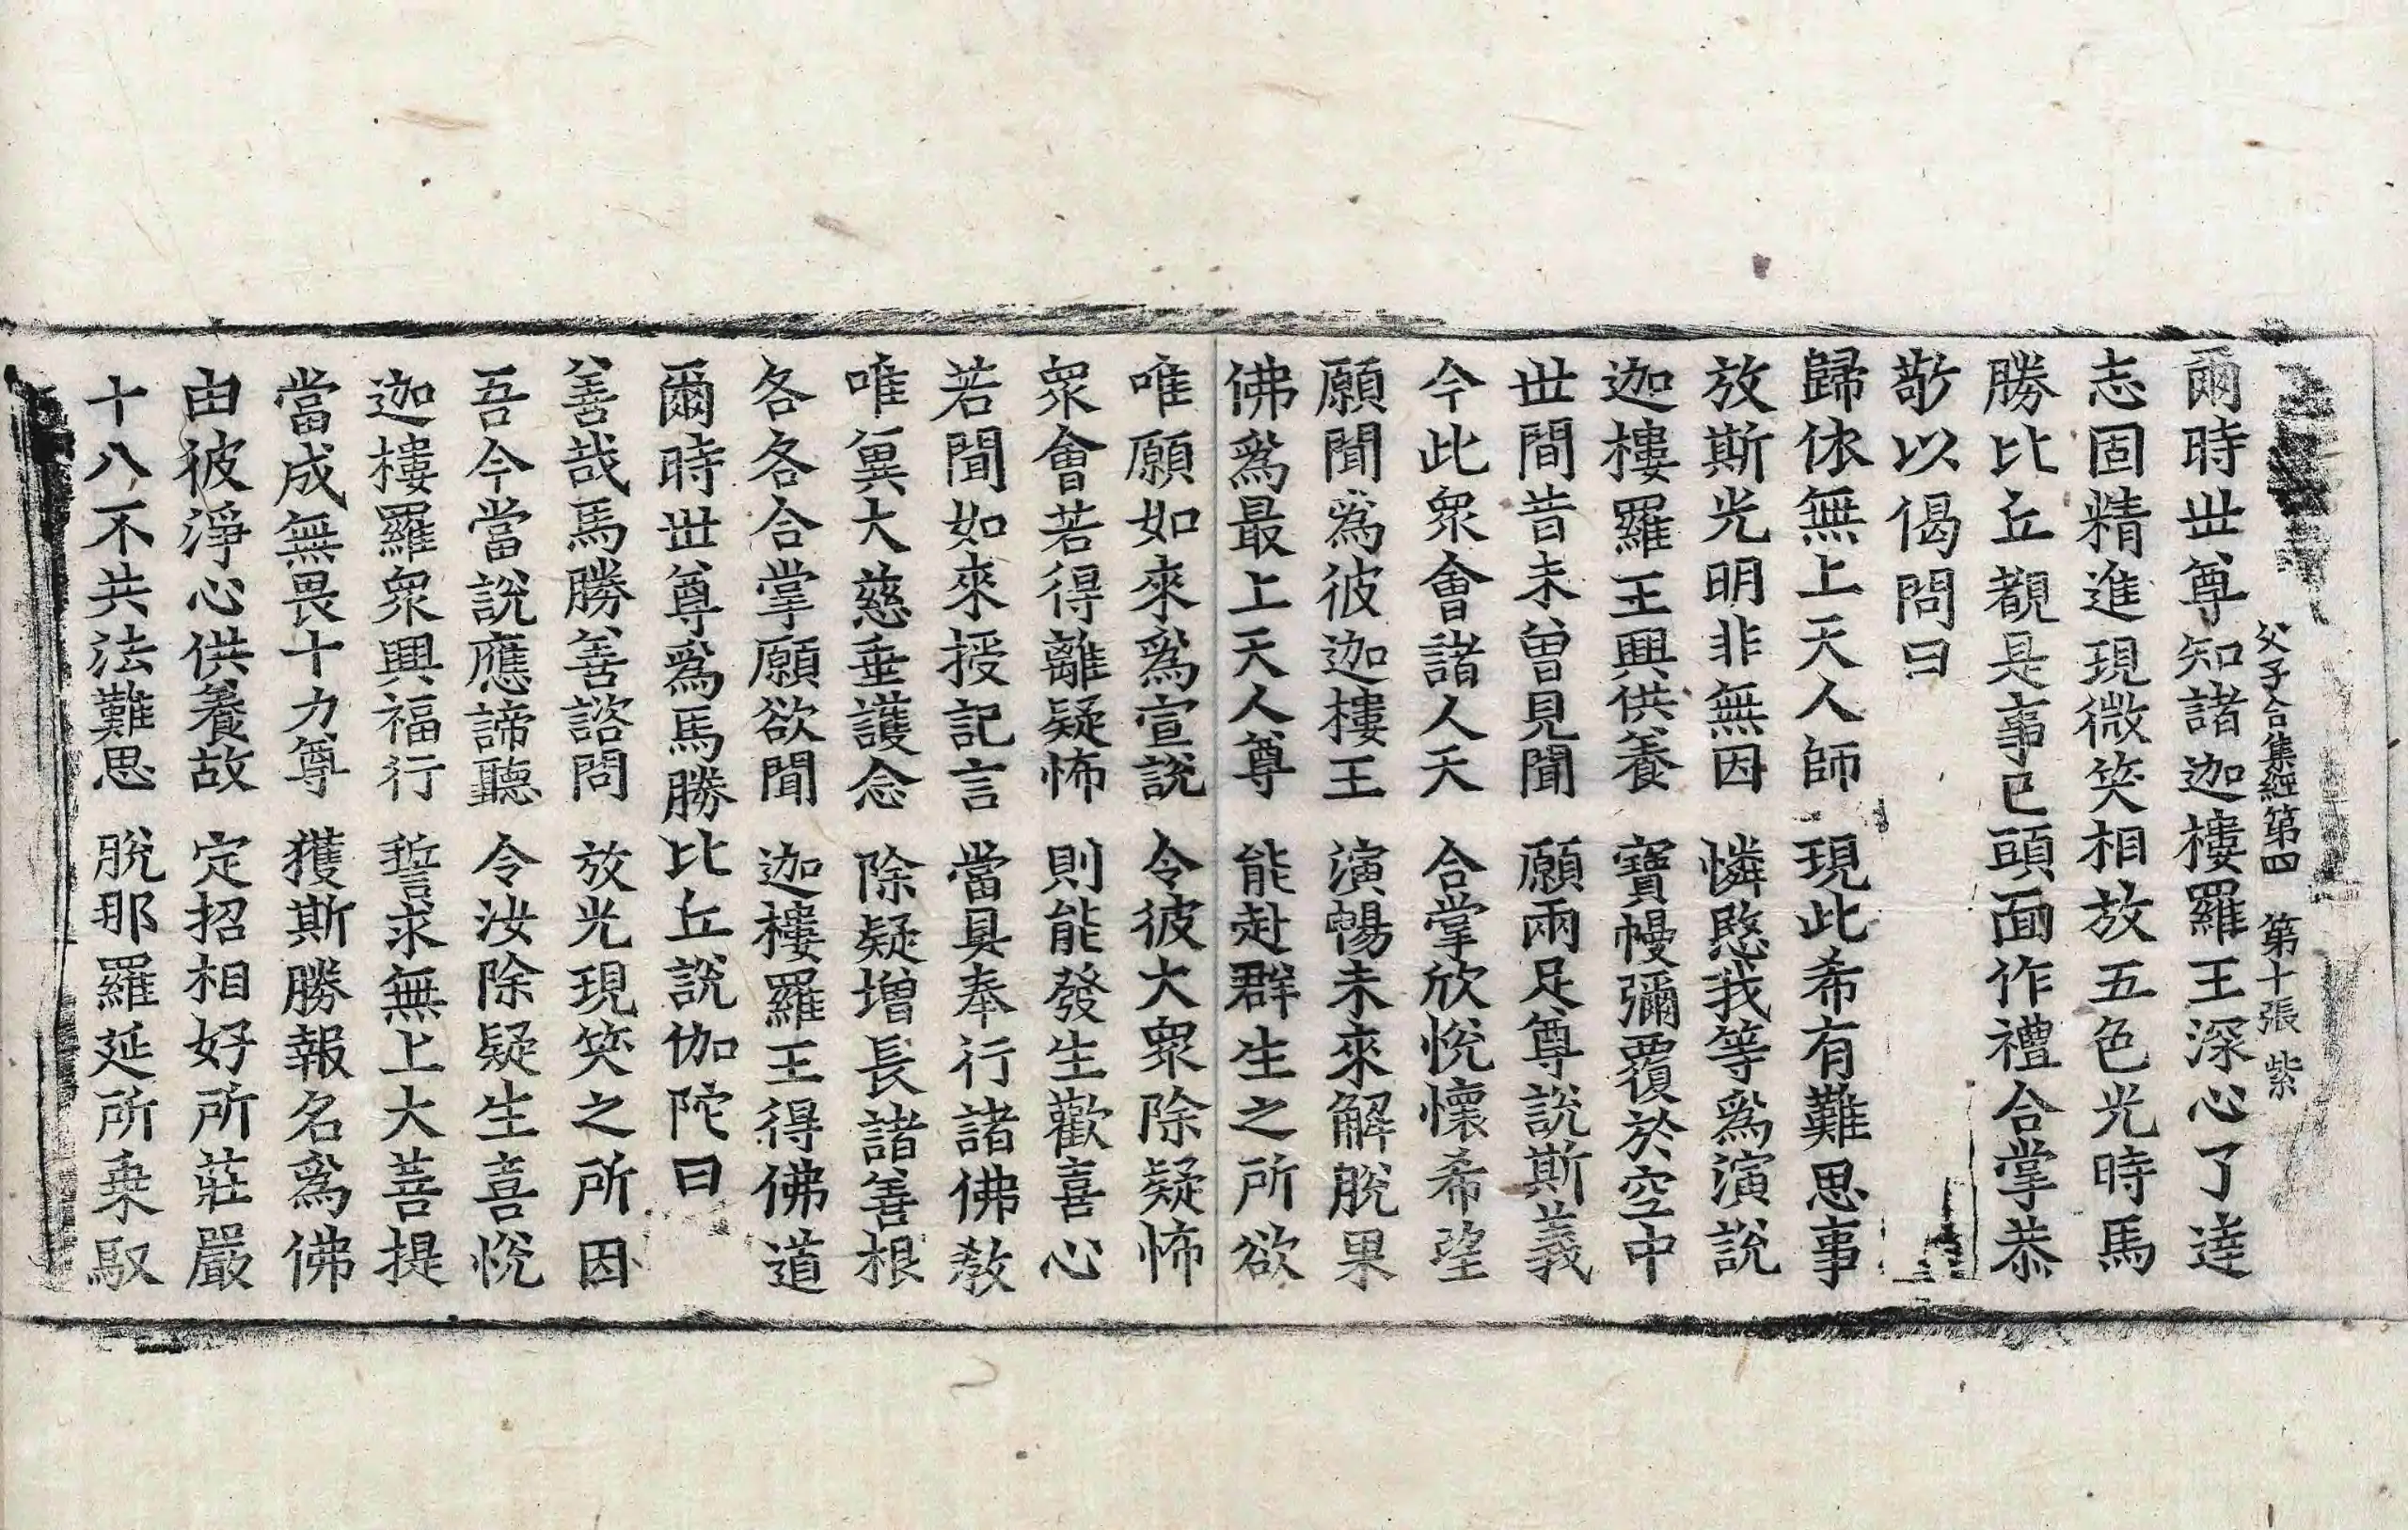 父子合集經第四 第十張 紫
爾時世尊知諸迦樓羅王深心了達
志固精進現微笑相放五色光時馬
勝比丘覩是事已頭面作禮合掌恭
敬以偈問曰
歸依無上天人師 現此希有難思事
放斯光明非無因 憐愍我等爲演說
迦樓羅王興供養 寶幔彌覆於空中
世間昔未曾見聞 願兩足尊說斯義
今此衆會諸人天 合掌欣悅懷希望
願聞爲彼迦樓王 演暢未來解脫果
佛爲最上天人尊 能赴群生之所欲
唯願如來爲宣說 令彼大衆除疑怖
衆會若得離疑怖 則能發生歡喜心
若聞如來授記言 當具奉行諸佛敎
唯冀大慈垂護念 除疑增長諸善根
各各合掌願欲聞 迦樓羅王得佛道
爾時世尊爲馬勝比丘說伽陀曰
善哉馬勝善諮問 放光現笑之所因
吾今當說應諦聽 令汝除疑生喜悅
迦樓羅衆興福行 誓求無上大菩提
當成無畏十力尊 獲斯勝報名爲佛
由彼淨心供養故 定招相好所莊嚴
十八不共法難思 脫那羅延所乘馭